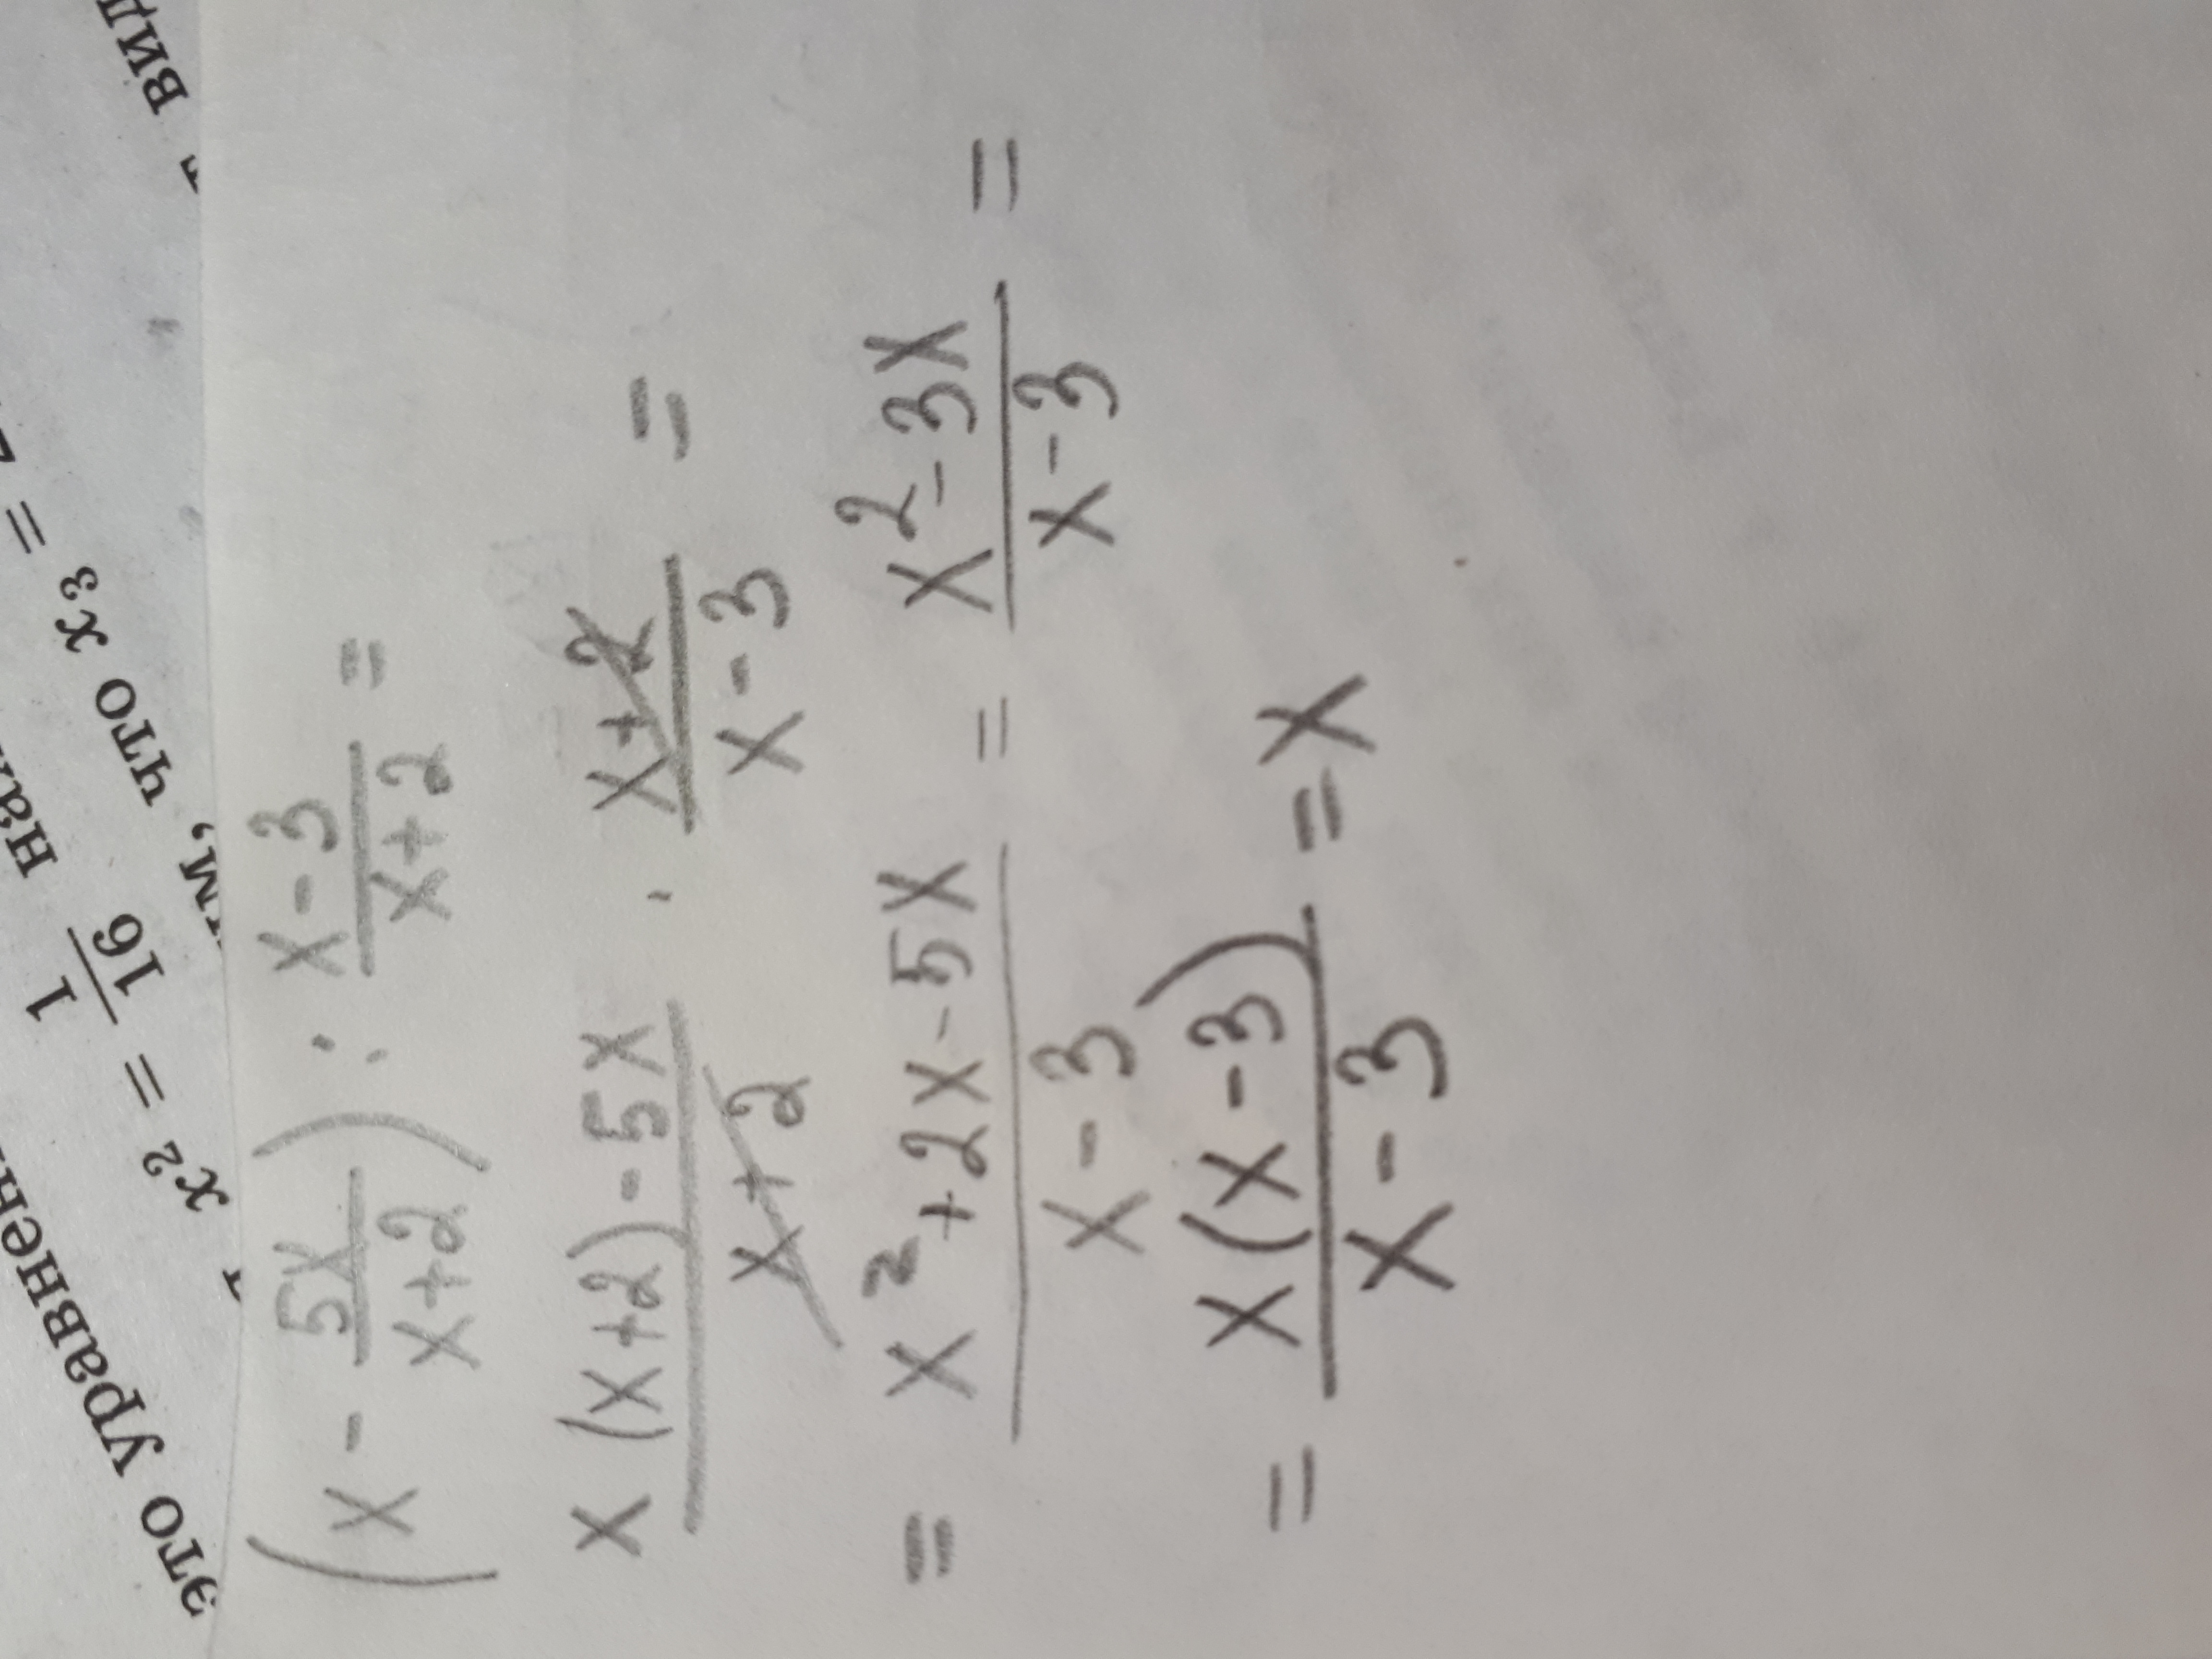 это уравнен
x² = 1/16
что x₃ =
вид
(x - 5x/(x+2)) : (x-3)/(x+2) =
(x(x+2)-5x)/(x+2) · (x+2)/(x-3) =
= (x²+2x-5x)/(x-3) = (x²-3x)/(x-3) =
= (x(x-3))/(x-3) = x